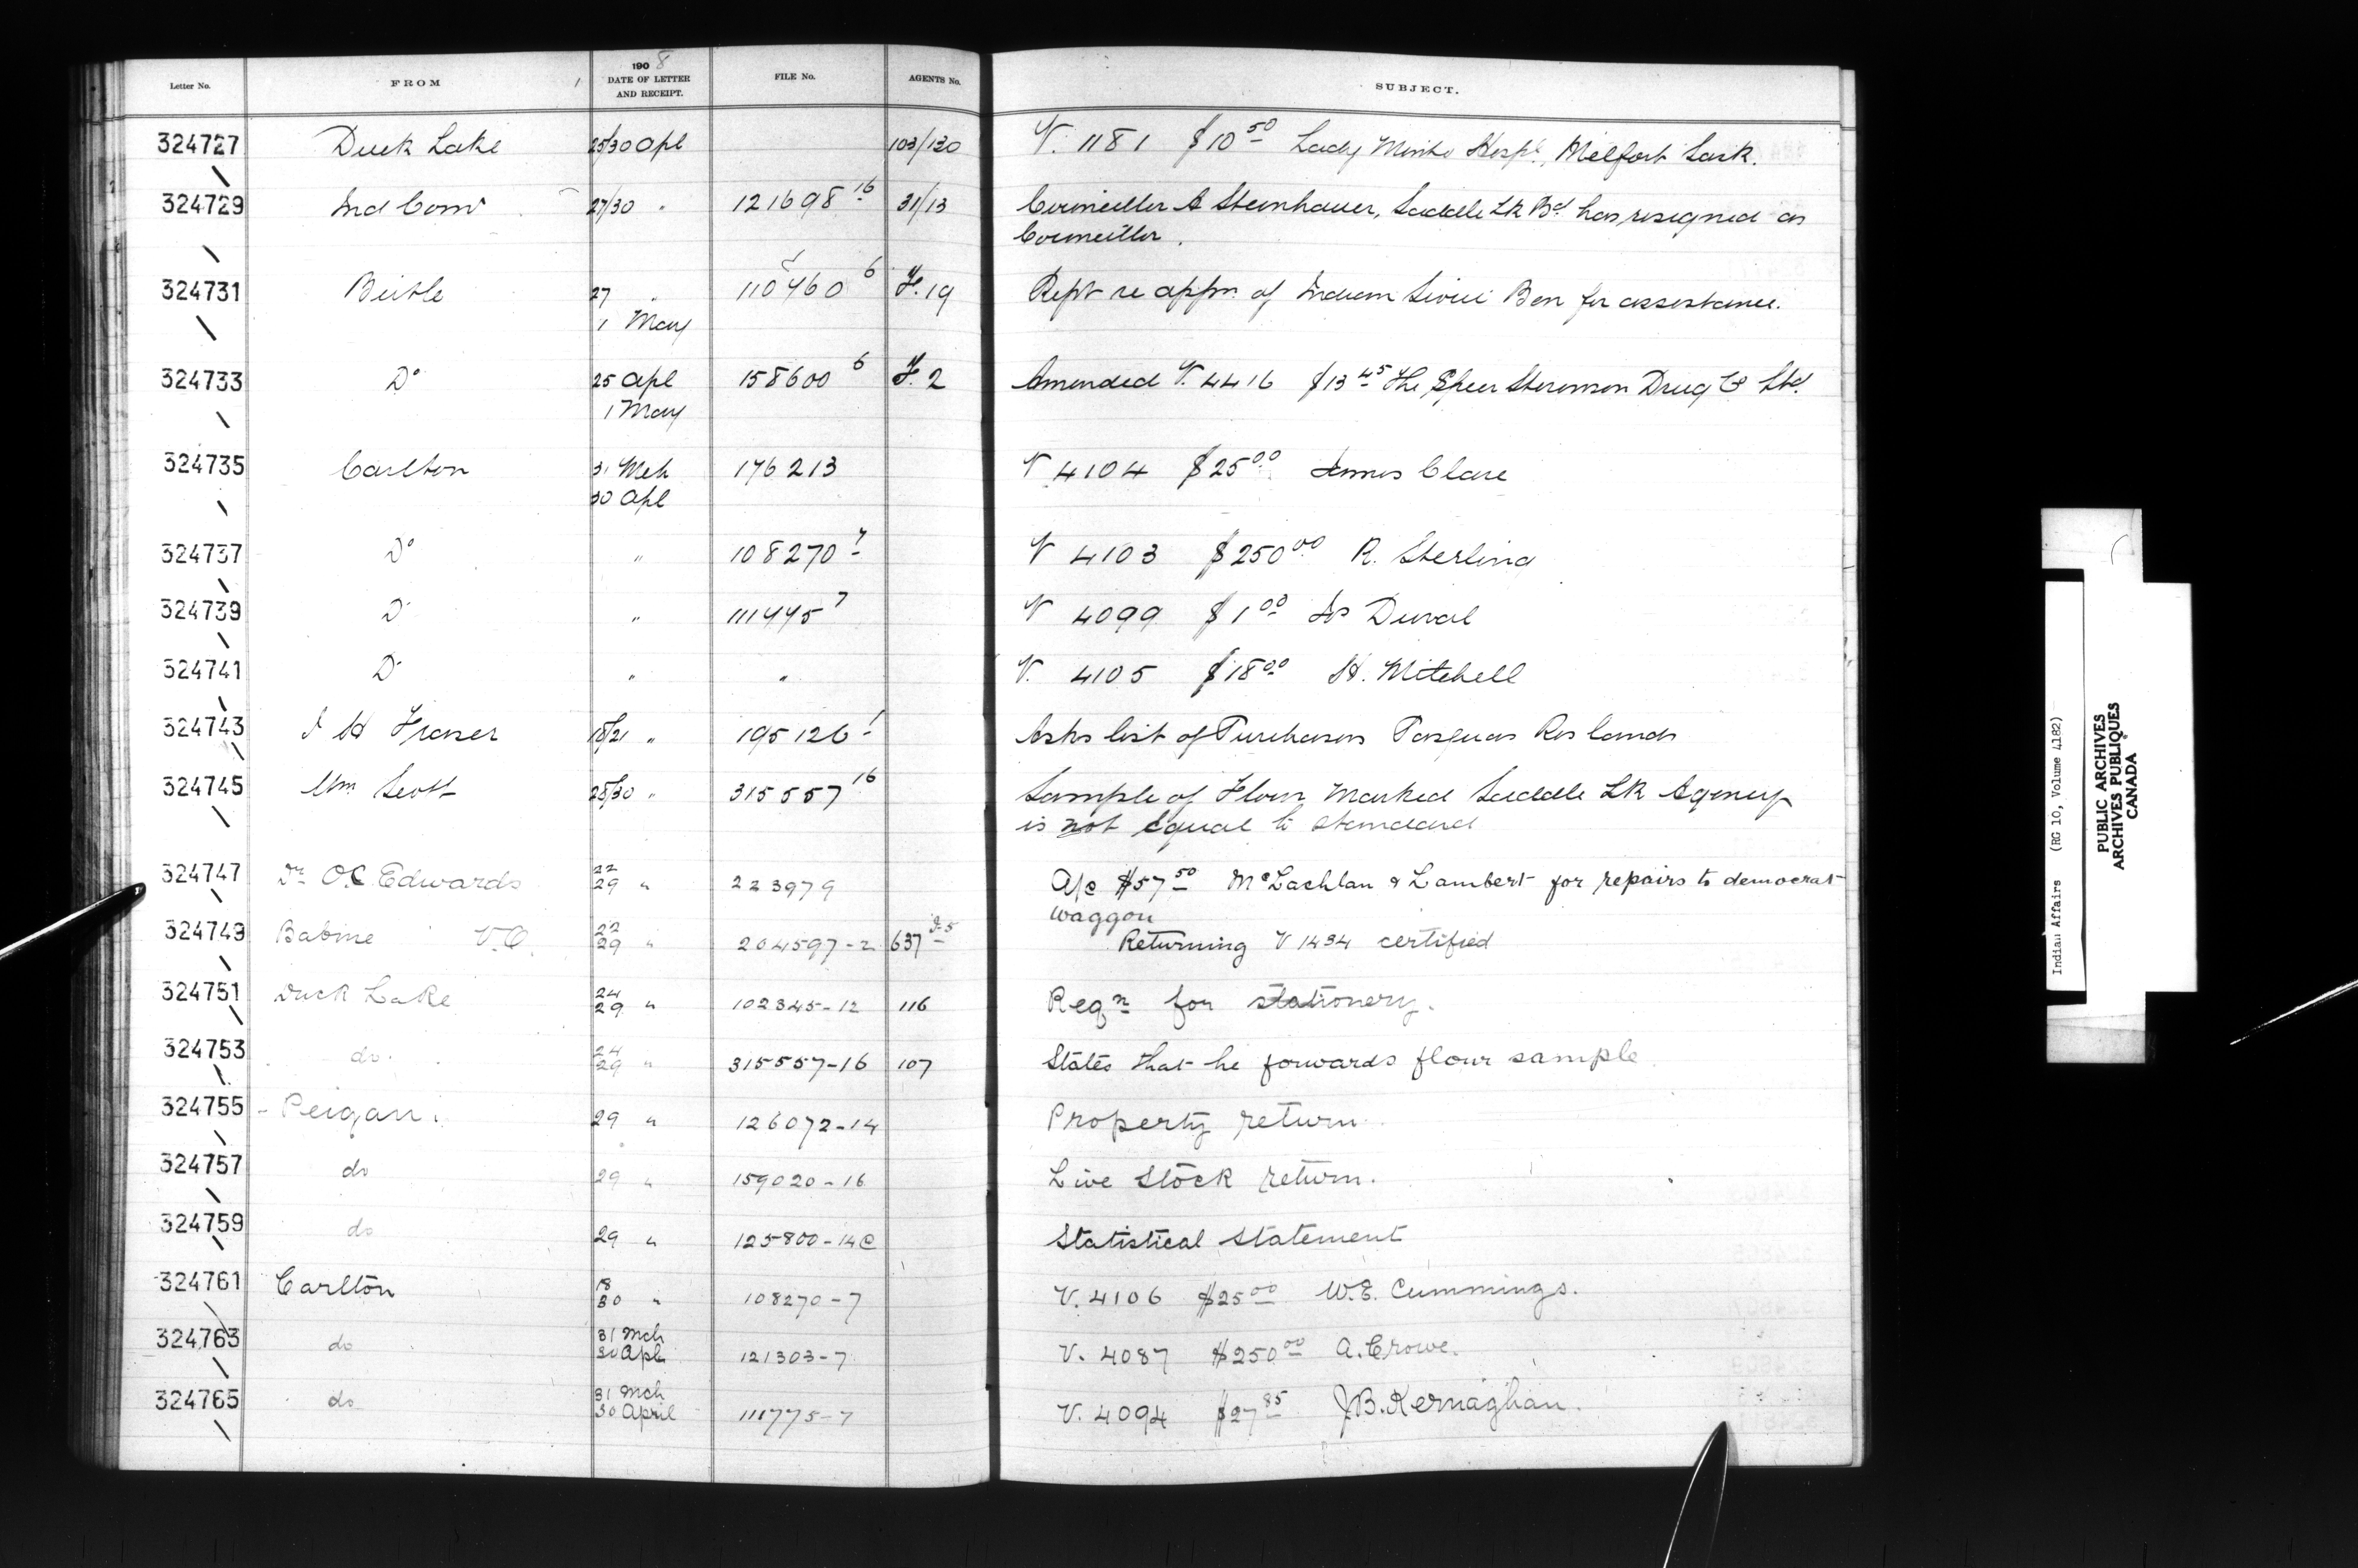 Letter No. FROM 1908 DATE OF LETTER AND RECEIPT. FILE No. AGENTS No. SUBJECT.
324727 Duck Lake 25/30 Apl 103/130 V. 1181 $10 50 Lady Minto Hospl, Melfort Sask.
324729 Ind Comr 27/30 " 121698 16 31/13 Councillor A Steinhauer, Saddle Lk Bd has resigned as
Councillor.
324731 Birtle 27 " 110460 6 F. 19 Rept re appn of Indian Sioui Ben for assistance.
1 May
324733 Do 25 Apl 158600 6 F. 2 Amended V. 4416 $13 45 The Speer Stevenson Drug Co Ltd.
1 May
324735 Carlton 31 Mch 176213 V 4104 $25 00 James Clare
30 Apl
324737 Do " 108270 7 V 4103 $250 00 R. Sterling
324739 Do " 111775 7 V 4099 $1 00 Duval
324741 Do " " V. 4105 $18 00 H. Mitchell
324743 H Fraser 18/21 " 195126 1 Asks list of Purchasers Pasquas Res lands
324745 Wm Scott 28/30 " 315557 16 Sample of Flour Marked Saddle Lk Agency
is not equal to standard
324747 Dr O.C Edwards 22/29 " 223979 A/c $57 50 McLachlan & Lambert for repairs to democrat
waggon
324749 Babine V.O. 22/29 " 204597-2 637 Returning V 1434 certified
324751 Duck Lake 24/29 " 102345-12 116 Reqn for stationery.
324753 do. 24/29 " 315557-16 107 States that he forwards flour sample
324755 Peigan. 29 " 126072-14 Property return
324757 do 29 " 159020-16 Live Stock return.
324759 do 29 " 125800-14C Statistical Statement
324761 Carlton 18/30 " 108270-7 V. 4106 $25 00 W.E. Cummings.
324763 do 31 Mch 30 Apl 121303-7 V. 4087 $250 00 A. Crowe.
324765 do 31 Mch 30 April 111775-7 V. 4094 $27 85 J.B. Kernaghan.
Indian Affairs (RG 10, Volume 4182)
PUBLIC ARCHIVES
ARCHIVES PUBLIQUES
CANADA